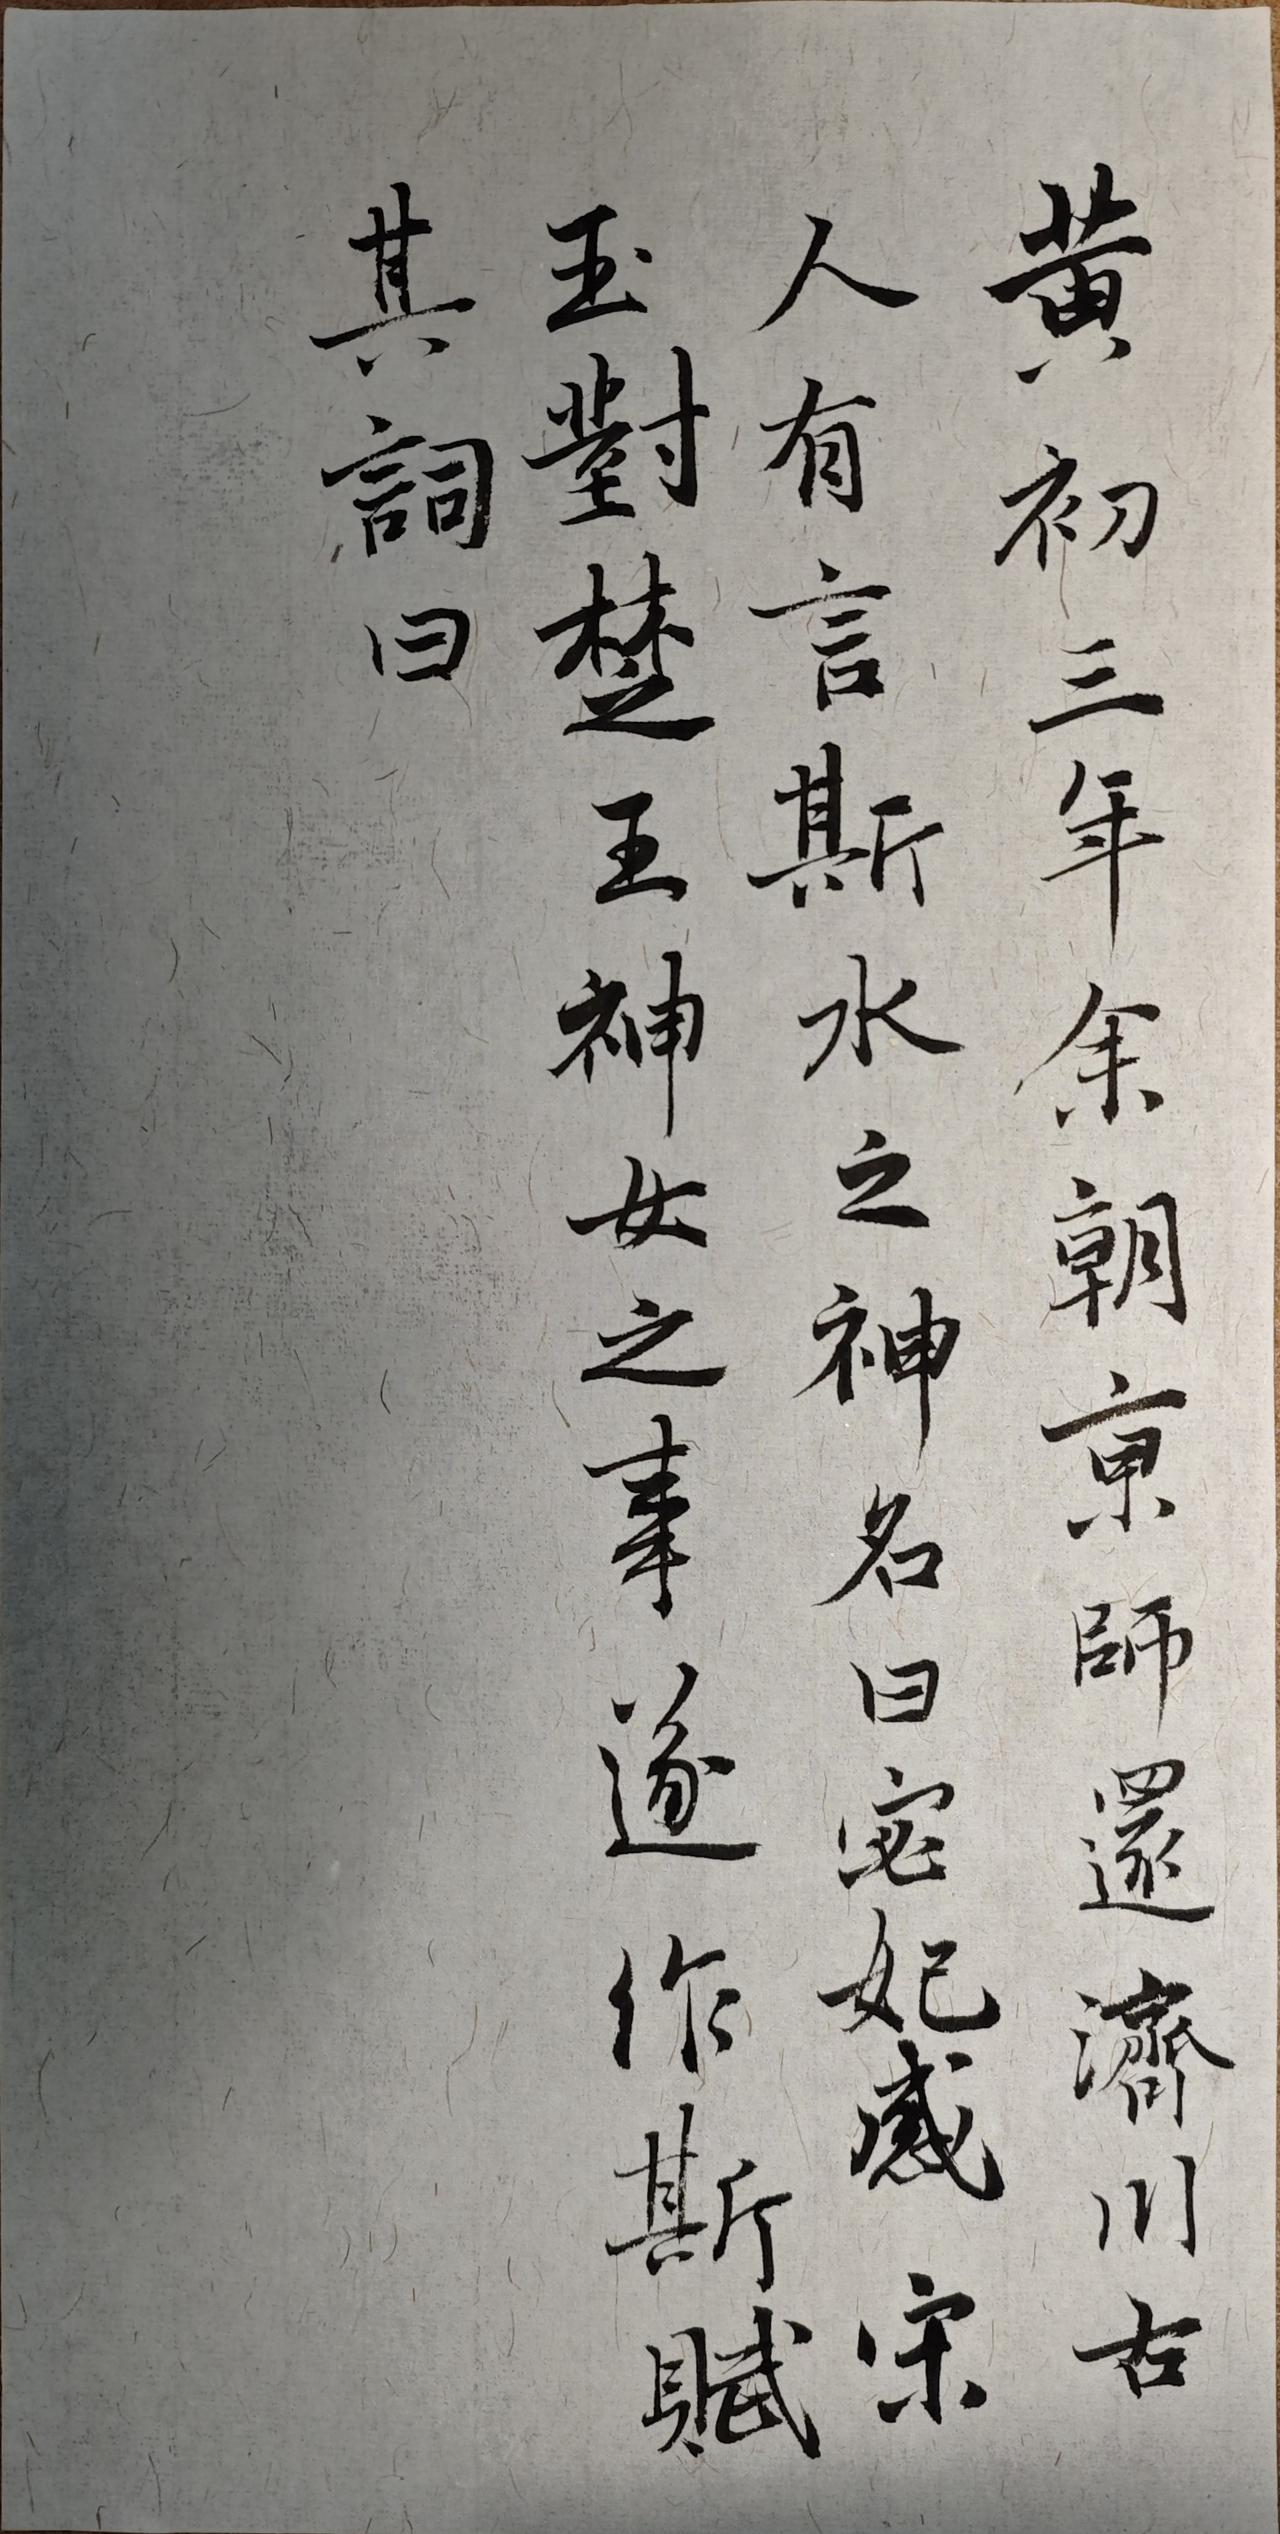 黃初三年余朝京師還濟川古
人有言斯水之神名曰宓妃感宋
玉對楚王神女之事遂作斯賦
其詞曰